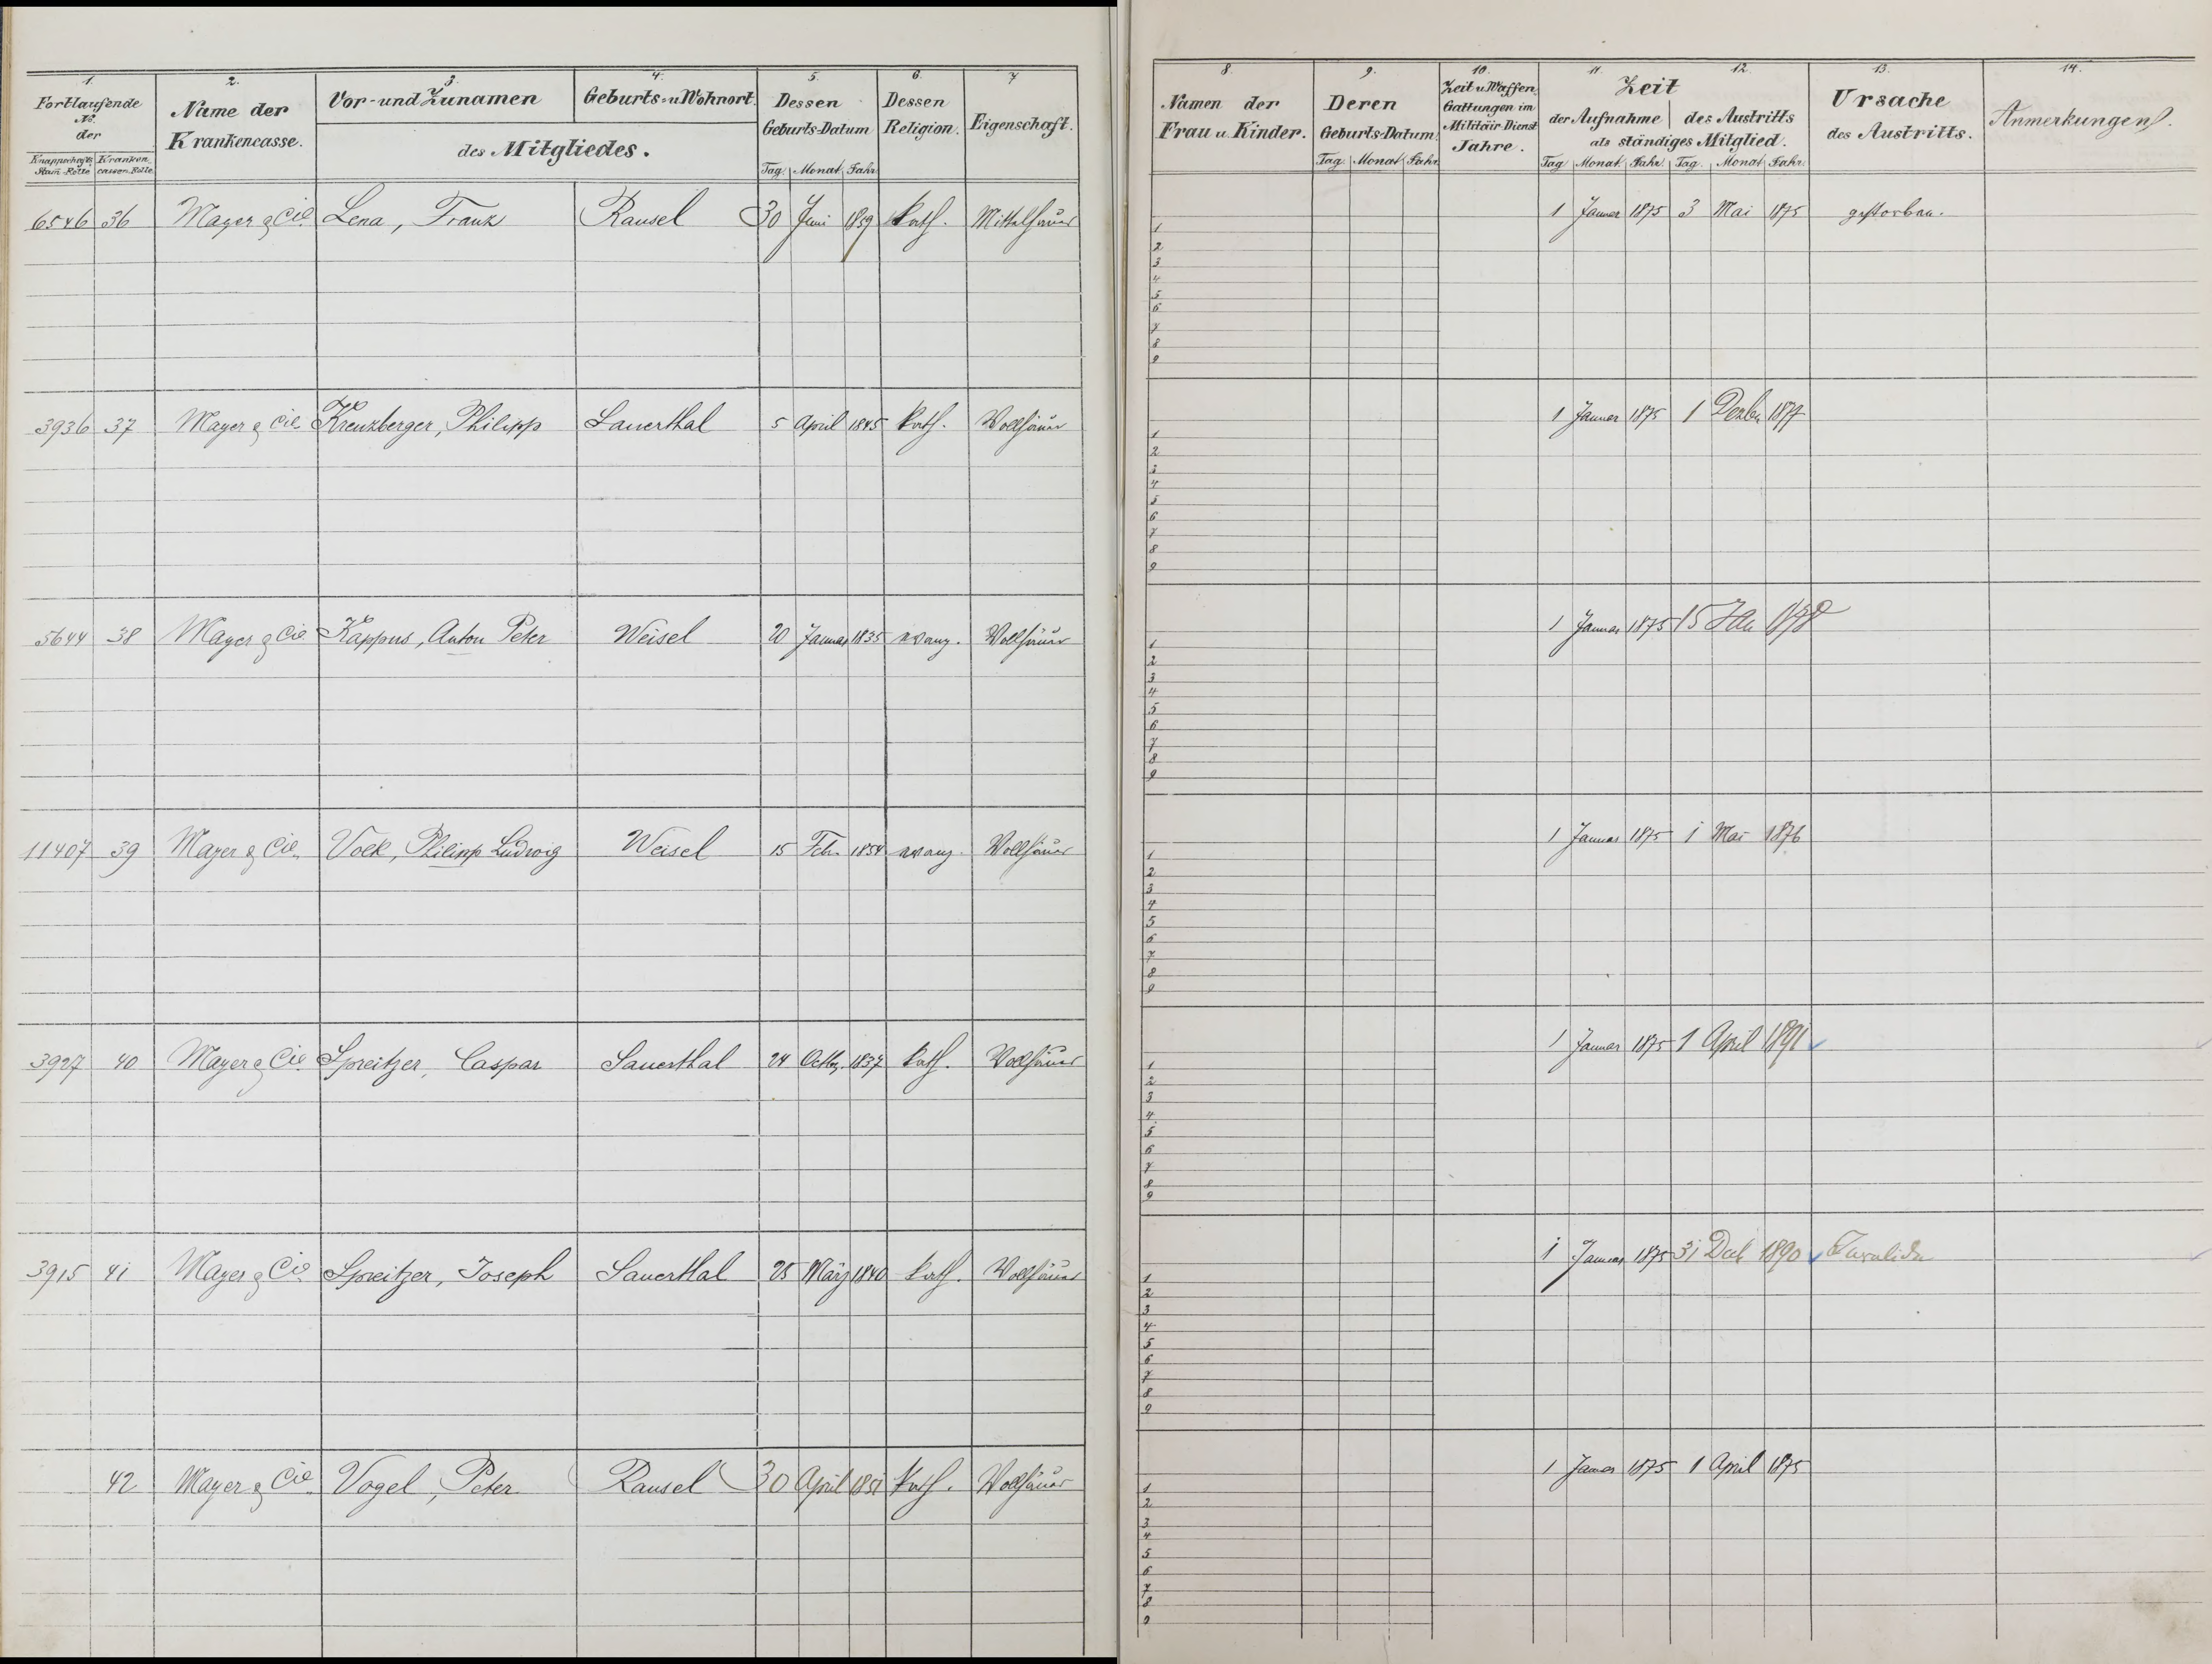 1. 2. 3. 4. 5. 6. 7
Fortlaufende No. der
Knappschafts Stam-Rolle Kranken cassen-Rolle
Name der Krankencasse.
Vor- und Zunamen Geburts- u. Wohnort.
des Mitgliedes.
Dessen Geburts-Datum
Tag. Monat Jahr.
Dessen Religion.
Eigenschaft.
8. 9. 10. 11. 12. 13. 14.
Namen der Frau u. Kinder.
Deren Geburts-Datum.
Tag. Monat Jahr.
Zeit u. Waffen Gattungen im Militäir-Dienst Jahre.
Zeit
der Aufnahme des Austritts
als ständiges Mitglied.
Tag Monat Jahr. Tag. Monat Jahr.
Ursache des Austritts.
Anmerkungen.
6546 36 Mayer & Cie. Lena, Franz Ransel 30 Juni 1859 kath. Mittelhäuer 1 Januar 1875 3 Mai 1875 gestorben.
1
2
3
4
5
6
7
8
9
3936 37 Mayer & Cie. Kreuzberger, Philipp Sauerthal 5 April 1845 kath. Vollhäuer 1 Januar 1875 1 Dezbr 1877
1
2
3
4
5
6
7
8
9
5644 38 Mayer & Cie Kappus, Anton Peter Weisel 20 Januar 1835 evang. Vollhäuer 1 Januar 1875 15 Jan
1
2
3
4
5
6
7
8
9
11407 39 Mayer & Cie. Volk, Philipp Ludwig Weisel 15 Febr. 1854 evang. Vollhäuer 1 Januar 1875 1 Mai 1876
1
2
3
4
5
6
7
8
9
3927 40 Mayer & Cie. Spreitzer, Caspar Sauerthal 24 Octbr. 1837 kath. Vollhäuer 1 Januar 1875 1 April 1891
1
2
3
4
5
6
7
8
9
3915 41 Mayer & Cie. Spreitzer, Joseph Sauerthal 25 März 1840 kath. Vollhäuer 1 Januar 1875 31 Dez 1890 Invalide
1
2
3
4
5
6
7
8
9
42 Mayer & Cie. Vogel, Peter Ransel 30 April 1851 kath. Vollhäuer 1 Januar 1875 1 April 1875
1
2
3
4
5
6
7
8
9